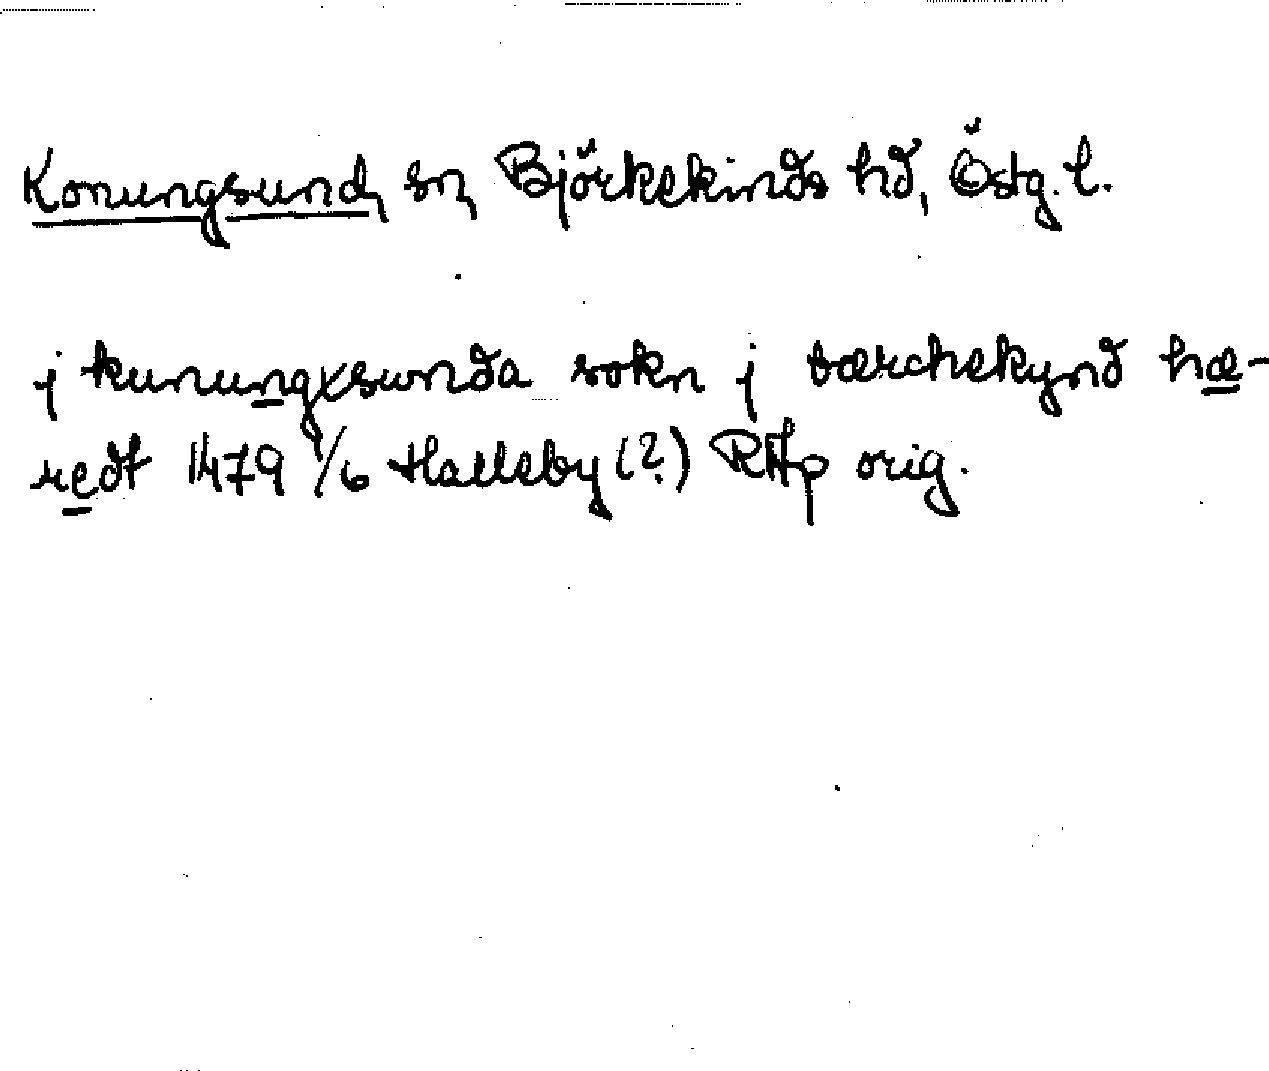 Konungsund, sn, Björkekinds hd, Östg. l.
j kunungxsunda sokn j bærchekynd hæ-
redt 1479 1/6 Halleby (?) RAp orig.